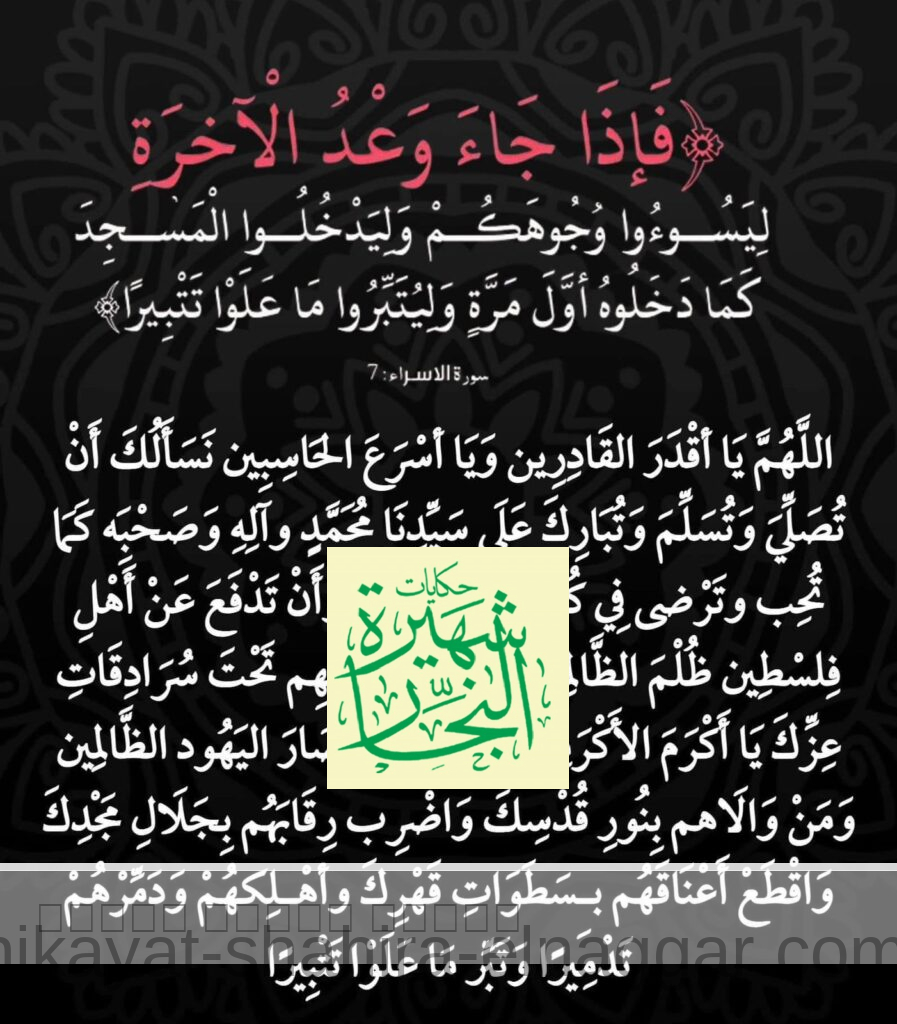 ﴿فَإِذَا جَاءَ وَعْدُ الْآخِرَةِ
لِيَسُوءُوا وُجُوهَكُمْ وَلِيَدْخُلُوا الْمَسْجِدَ
كَمَا دَخَلُوهُ أَوَّلَ مَرَّةٍ وَلِيُتَبِّرُوا مَا عَلَوْا تَتْبِيرًا﴾
سورة الاسراء: 7
اللَّهُمَّ يَا أَقْدَرَ القَادِرِين وَيَا أَسْرَعَ الحَاسِبِين نَسَأَلُكَ أَنْ
تُصَلِّيَ وَتُسَلِّمَ وَتُبَارِكَ عَلَى سَيِّدِنَا مُحَمَّدٍ وآلِهِ وَصَحْبِه كَمَا
تُحِب وتَرْضى فِي أَنْ تَدْفَعَ عَنْ أَهْلِ
فِلِسْطِين ظُلْمَ تَحْتَ سُرَادِقَاتِ
عِزِّكَ يَا أَكْرَمَ اليَهُود الظَّالِمِين
وَمَنْ وَالَاهم بِنُورِ قُدْسِكَ وَاضْرِب رِقَابَهُم بِجَلَالِ مَجْدِكَ
وَاقْطَعْ أَعْنَاقَهُم بِسَطَوَاتِ قَهْرِكَ وأَهْلِكهُمْ وَدَمِّرْهُمْ
تَدْمِيرًا وَتَبِّر مَا عَلَوْا تَتْبِيرًا
حكايات
شهيرة
النجار
hikayat-shahira-elnaggar.com